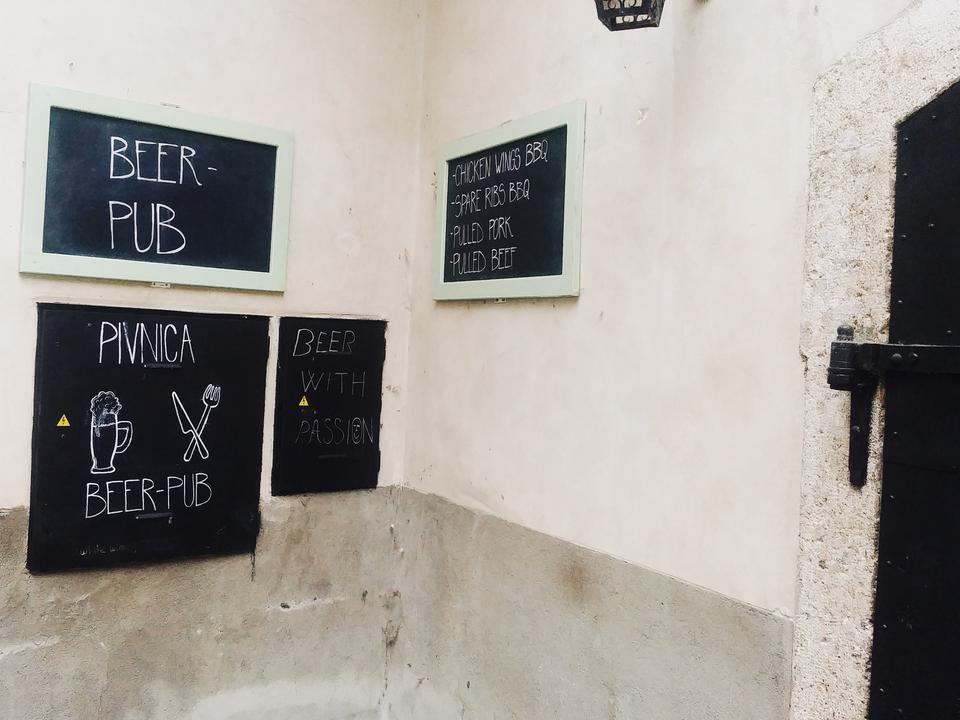 BEER-
PUB
-CHICKEN WINGS BBQ
-SPARE RIBS BBQ
-PULLED PORK
-PULLED BEEF
PIVNICA
BEER-PUB
BEER
WITH
PASSION